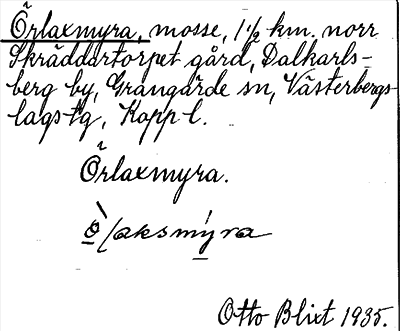 Örlaxmyra, mosse, 1½ km. norr
Skräddartorpet gård, Dalkarls-
berg by, Grangärde sn, Västerbergs-
lags tg, Kopp. l.
Örlaxmyra.
Otto Blixt 1935.